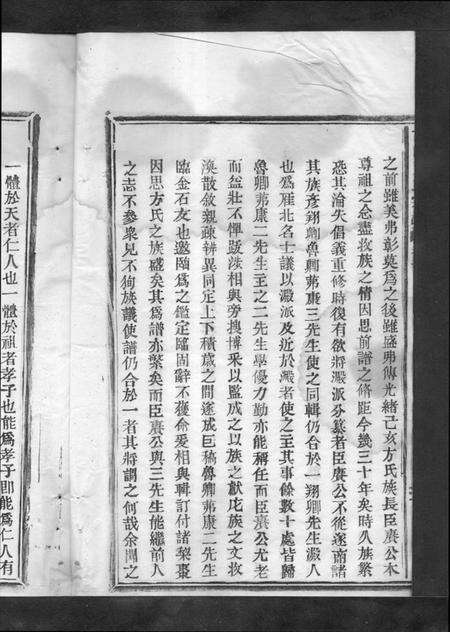 之前雖美弗彰莫爲之後雖盛弗傳光緒己亥方氏族長臣賡公本
尊祖之念盡收族之情因思前譜之修距今幾三十年矣時久族繁
恐其淪失倡義重修時復有欲將澱派分纂者臣賡公不從遂商諸
其族彥翔卿魯卿弗康三先生使之同輯仍合於一翔卿先生澱人
也爲淮北名士議以澱派及近於澱者使之主其事餘數十處皆歸
魯卿弗康二先生主之二先生學優力勤亦能稱任而臣賡公尤老
而益壯不憚跋涉相與旁搜博采以監成之以族之獻庀族之文收
渙散敘親疎辨異同定上下積歲之間遂成巨稿魯卿弗康二先生
臨金石友也邀臨爲之鑑定臨固辭不獲僉爰相與輯訂付諸棃棗
因思方氏之族盛矣其爲譜亦繁矣而臣賡公與三先生能繼前人
之志不參衆見不狥族議使譜仍合於一者其將謂之何哉余聞之
一體於天者仁人也一體於祖者孝子也能爲孝子即能爲仁人有